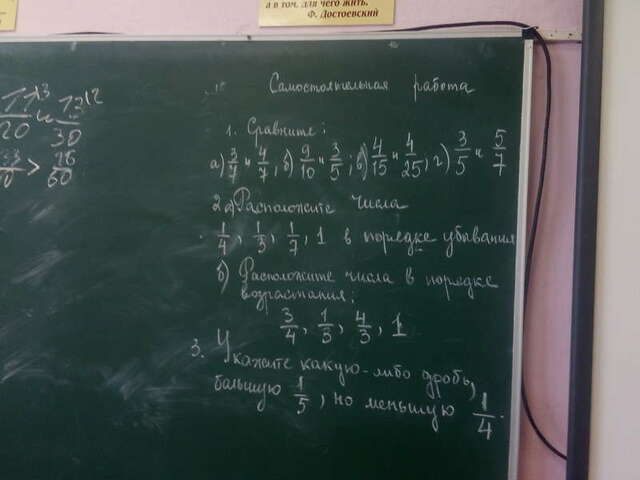 а в том, для чего жить.
Ф. Достоевский
Самостоятельная работа
1. Сравните:
а) 3/7 и 4/7; б) 9/10 и 3/5; в) 4/15 и 4/25, г) 3/5 и 5/7
2. а) Расположите числа
1/4, 1/3, 1/7, 1 в порядке убывания
б) Расположите числа в порядке
возрастания:
3/4, 1/3, 4/3, 1
3. Укажите какую-либо дробь,
большую 1/5, но меньшую 1/4.